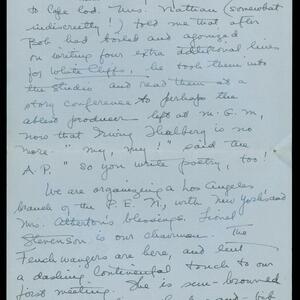 to Cape Cod. Mrs. Nathan (somewhat
indiscreetly!) told me that after
Bob had toiled and agonized
on writing four extra additional lines
for White Cliffs, he took them into
the Studio and read them at a
story conference to perhaps the
ablest producer left at M.G.M,
now that Irving Thalberg is no
more. "My, my!" said the
A.P. "So you write poetry, too!
We are organizing a Los Angeles
branch of the P.E.N, with New York's and
Mrs. Atherton's blessings. Lionel
Stevenson is our chairman. The
Feuchwangers are here, and lent
a dashing Continental touch to our
first meeting. She is semi-browned